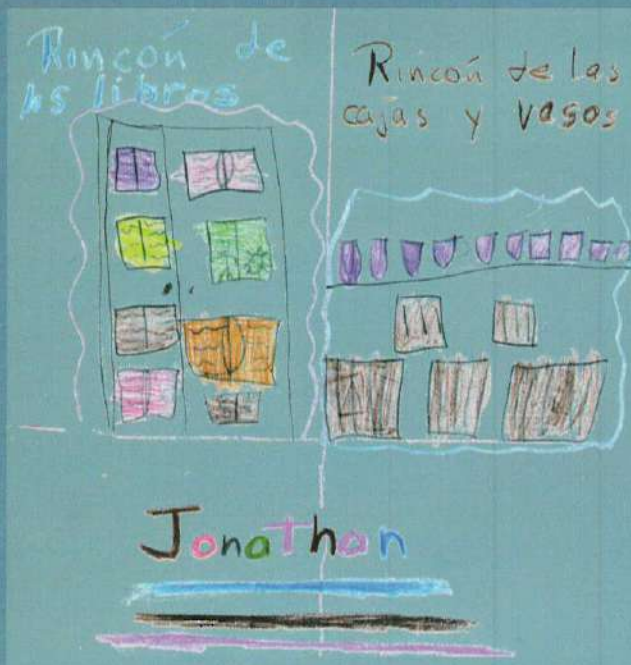 Rincón de
los libros
Rincón de las
cajas y vasos
Jonathan